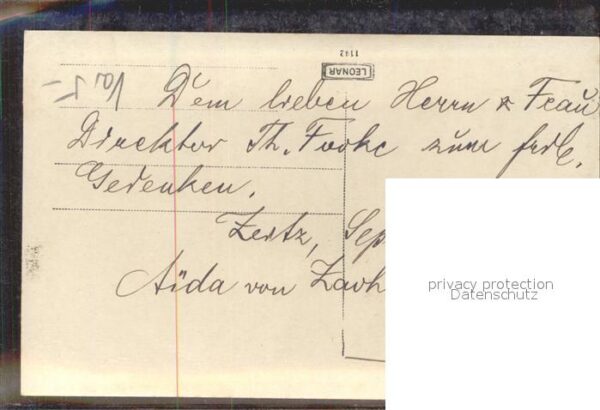 1142
LEONAR
Dem lieben Herrn & Frau
Direktor Th. Fooke zum frdl.
Gedenken.
Zeitz, Sep
Aïda von
privacy protection
Datenschutz